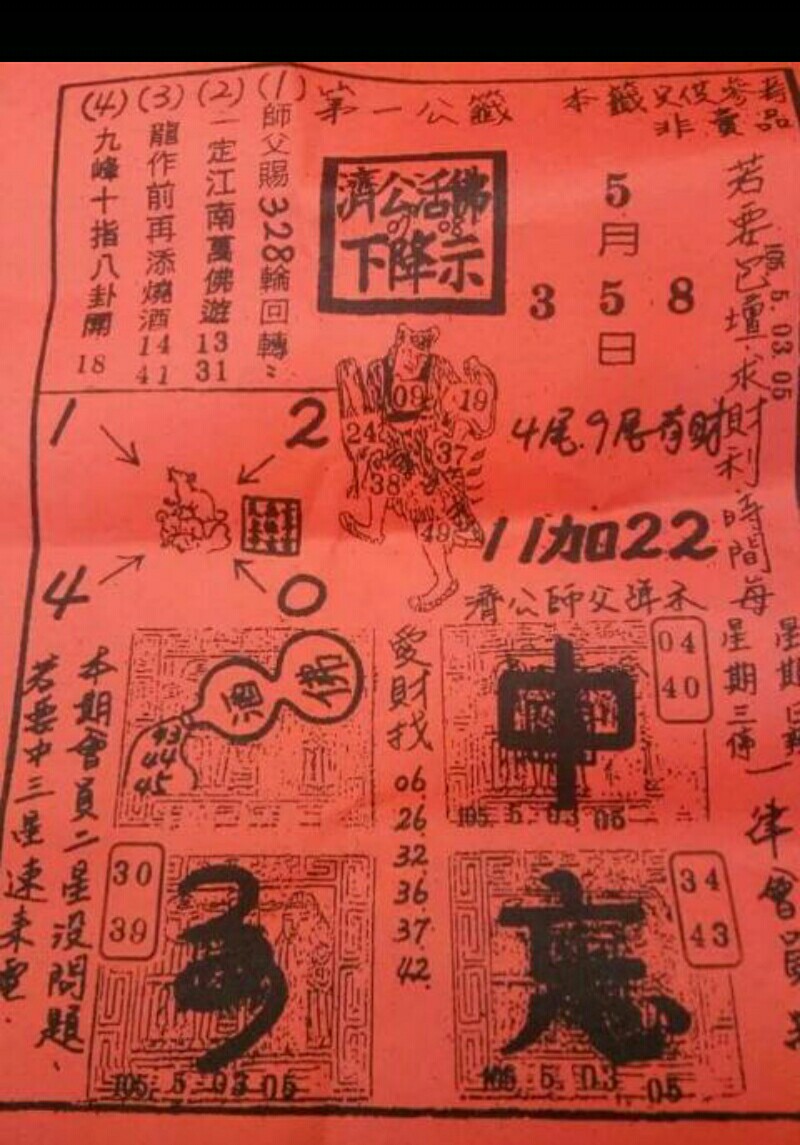 第一公籤
本籤只供參考
非賣品
(1)師父賜328輪回轉
(2)一定江南萬佛遊 13 31
(3)龍作前再添燒酒 14 41
(4)九峰十指八卦開 18
濟公活佛
07 08
下降示
5
月
3 5 8
日
若要包壇求財利時間每
105. 5. 03 05
星期三佛
一律會員
1
2
4
0
09
19
24
37
38
49
4尾.9尾有財
11加22
濟公師父降示
酒 佛
44
45
愛財找
06
26.
32.
36.
37.
42.
中
04
40
105. 5. 03 05
本期會員二星沒問題、
若要中三星速來電.
30
39
105. 5. 03 05
34
43
105. 5. 03
05